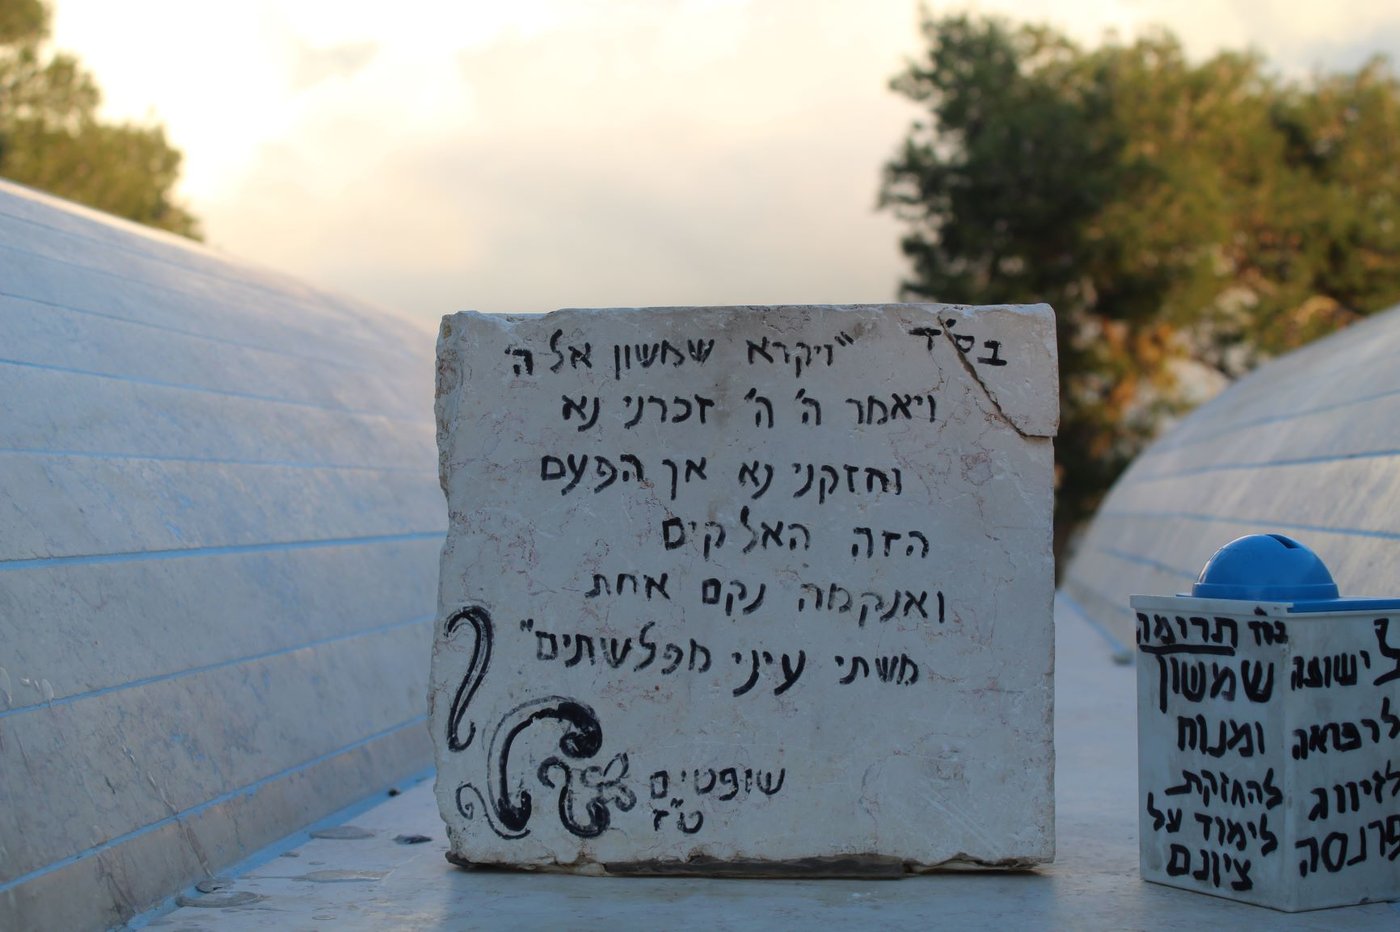 בס״ד
״ויקרא שמשון אל ה׳
ויאמר ה׳ ה׳ זכרני נא
וחזקני נא אך הפעם
הזה האלקים
ואנקמה נקם אחת
משתי עיני מפלשתים״
שופטים
ט״ז
תרומה
שמשון
ומנוח
להחזקת
לימוד על
ציונם
לישועה
לרפואה
לזיווג
פרנסה